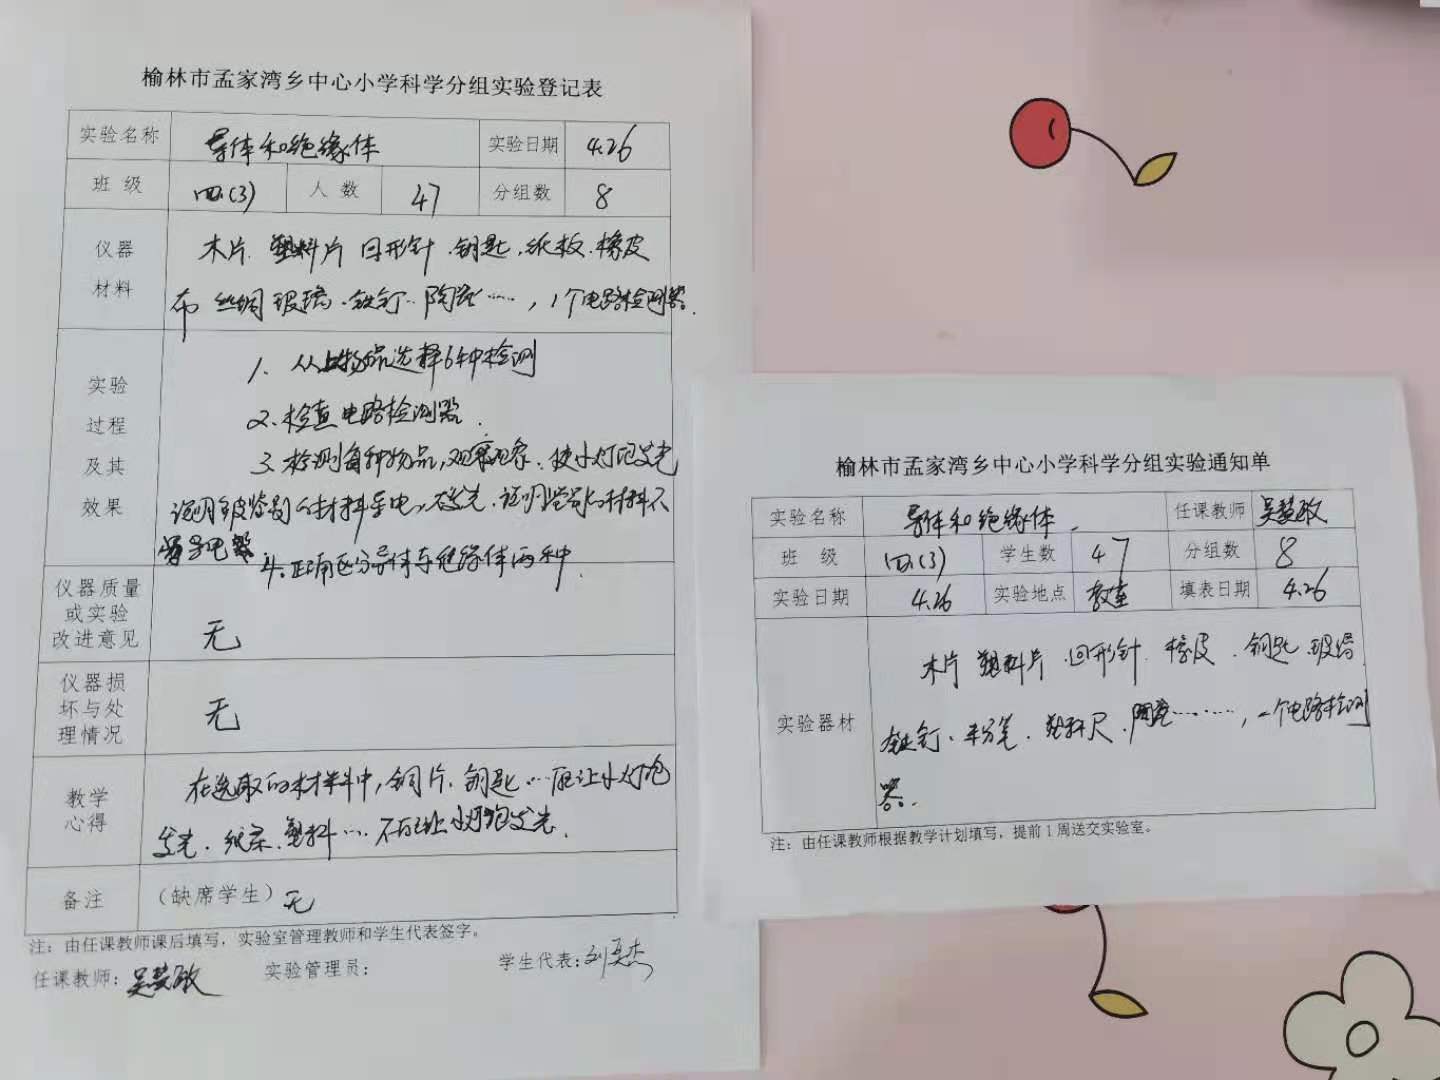 榆林市孟家湾乡中心小学科学分组实验登记表
实验名称 导体和绝缘体 实验日期 4.26
班 级 四.(3) 人 数 47 分组数 8
仪器
材料
木片 塑料片 回形针 、钥匙、纸板、橡皮
布 丝绸 玻璃、铁钉、陶瓷……，1个电路检测器.
实验
过程
及其
效果
1、从上物品选择6种检测
2、检查电路检测器.
3、检测每种物品，观察现象、使小灯泡发光
说明被检测的材料导电，不发光、说明材料不
易导电.
4、正确区分导体与绝缘体两种.
仪器质量
或实验
改进意见
无
仪器损
坏与处
理情况
无
教学
心得
在选取的材料中，铜片、钥匙…能让小灯泡
发光、纸、塑料…不能让小灯泡发光.
备注 （缺席学生）无
注：由任课教师课后填写，实验室管理教师和学生代表签字。
任课教师：吴慧敏 实验管理员： 学生代表：刘杰
榆林市孟家湾乡中心小学科学分组实验通知单
实验名称 导体和绝缘体 任课教师 吴慧敏
班 级 四.(3) 学生数 47 分组数 8
实验日期 4.26 实验地点 教室 填表日期 4.26
实验器材
木片 塑料片 、回形针 、橡皮 、钥匙、玻璃
铁钉、粉笔、塑料尺、陶瓷………，一个电路检测
器.
注：由任课教师根据教学计划填写，提前1周送交实验室。